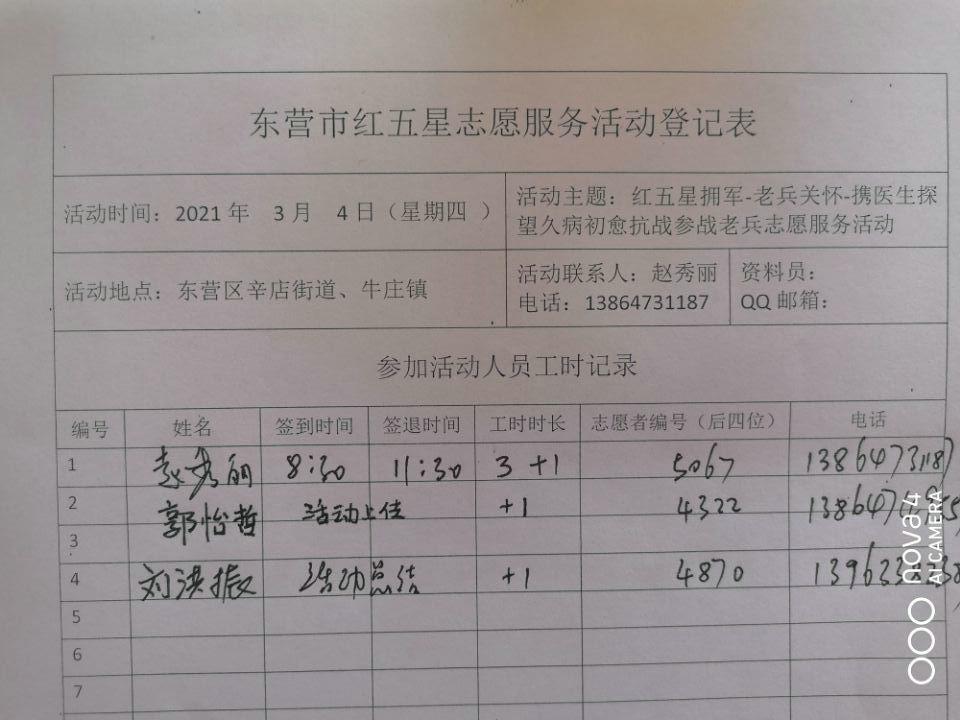 东营市红五星志愿服务活动登记表
活动时间：2021 年 3 月 4 日（星期四 ）
活动主题：红五星拥军-老兵关怀-携医生探
望久病初愈抗战参战老兵志愿服务活动
活动地点：东营区辛店街道、牛庄镇
活动联系人：赵秀丽
电话：13864731187
资料员：
QQ 邮箱：
参加活动人员工时记录
编号 姓名 签到时间 签退时间 工时时长 志愿者编号（后四位） 电话
1 赵秀丽 8:30 11:30 3 +1 5067 13864731187
2 郭怡哲 活动上传 +1 4322
3
4 刘洪振 活动总结 +1 4870
5
6
7
nova 4
AI CAMERA